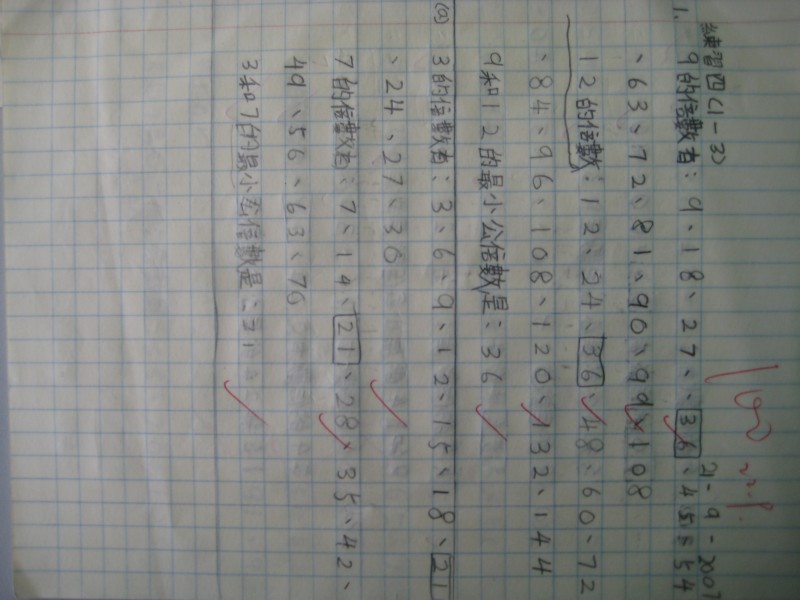 練習四(1-3) 21-9-2007
1. 9的倍數有:9、18、27、、36、45、54
、63、72、81、90、99、108
12的倍數:12、24、36、48、60、72
、84、96、108、120、132、144
9和12的最小公倍數是:36
(a) 3的倍數有:3、6、9、12、15、18、21
、24、27、30
7的倍數有:7、14、21、28、35、42、
49、56、63、70
3和7的最小公倍數是:21